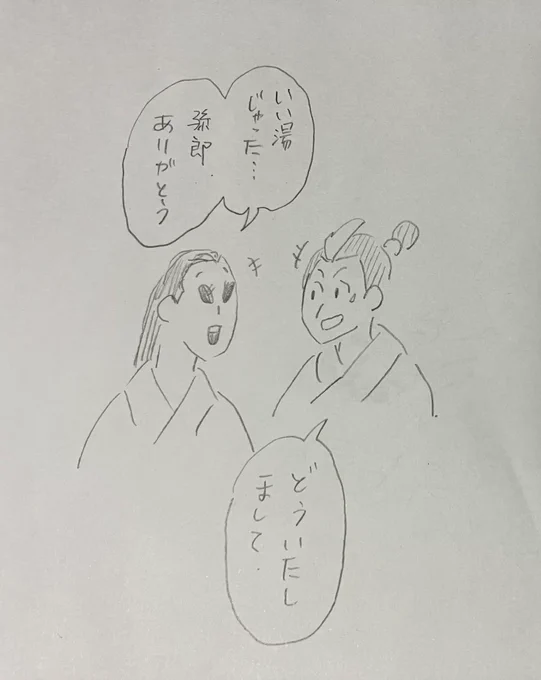 いい湯
じゃった…
弥郎
ありがとう
どういたし
まして.